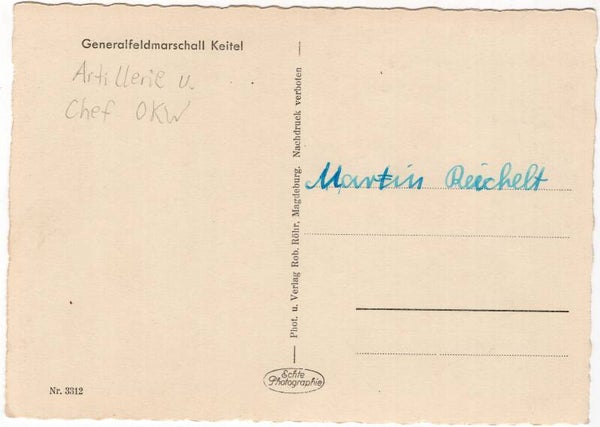 Generalfeldmarschall Keitel
Artillerie u.
Chef OKW
Phot. u. Verlag Rob. Röhr, Magdeburg. Nachdruck verboten
Martin Reichelt
Echte
Photographie
Nr. 3312